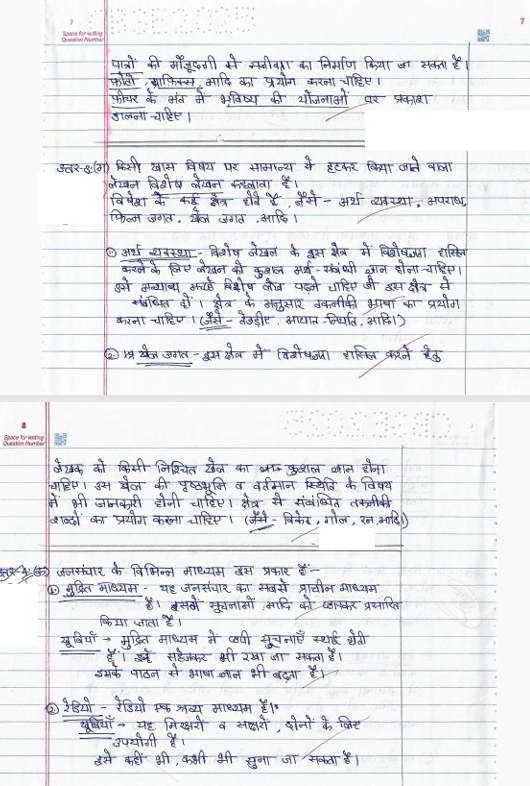 7
Space for writing
Question Number
पात्रों की मौजूदगी से सजीवता का निर्माण किया जा सकता है।
फ़ोटो, ग्राफिक्स आदि का प्रयोग करना चाहिए।
फ़ीचर के अंत में भविष्य की योजनाओं पर प्रकाश
डालना चाहिए।
उत्तर-6:(ग) किसी खास विषय पर सामान्य से हटकर किया जाने वाला
लेखन विशेष लेखन कहलाता है।
विशेष के कई क्षेत्र होते हैं, जैसे - अर्थ व्यवस्था, अपराध,
फिल्म जगत, खेल जगत आदि।
① अर्थ व्यवस्था - विशेष लेखन के इस क्षेत्र में विशेषज्ञता हासिल
करने के लिए लेखन को कुशल अर्थ-संबंधी ज्ञान होना चाहिए।
उसे अन्यान्य अच्छे विशेष लेख पढ़ने चाहिए जो इस क्षेत्र से
संबंधित हों। क्षेत्र के अनुसार तकनीकी भाषा का प्रयोग
करना चाहिए। (जैसे - तेजड़िए, आयात-निर्यात, आदि।)
② खेल जगत - इस क्षेत्र में विशेषज्ञता हासिल करने हेतु
8
Space for writing
Question Number
लेखक को किसी निश्चित खेल का कुशल ज्ञान होना
चाहिए। उस खेल की पृष्ठभूमि व वर्तमान स्थिति के विषय
में भी जानकारी होनी चाहिए। क्षेत्र से संबंधित तकनीकी
शब्दों का प्रयोग करना चाहिए। (जैसे - विकेट, गोल, रन आदि।)
जनसंचार के विभिन्न माध्यम इस प्रकार हैं -
① मुद्रित माध्यम - यह जनसंचार का सबसे प्राचीन माध्यम
है। इसमें सूचनाओं आदि को छापकर प्रसारित
किया जाता है।
खूबियाँ → मुद्रित माध्यम में छपी सूचनाएँ स्थाई होती
हैं। इन्हें सहेजकर भी रखा जा सकता है।
इसके पाठन से भाषा ज्ञान भी बढ़ता है।
② रेडियो - रेडियो एक श्रव्य माध्यम है।
खूबियाँ → यह निरक्षरों व साक्षरों, दोनों के लिए
उपयोगी है।
इसे कहीं भी, कभी भी सुना जा सकता है।